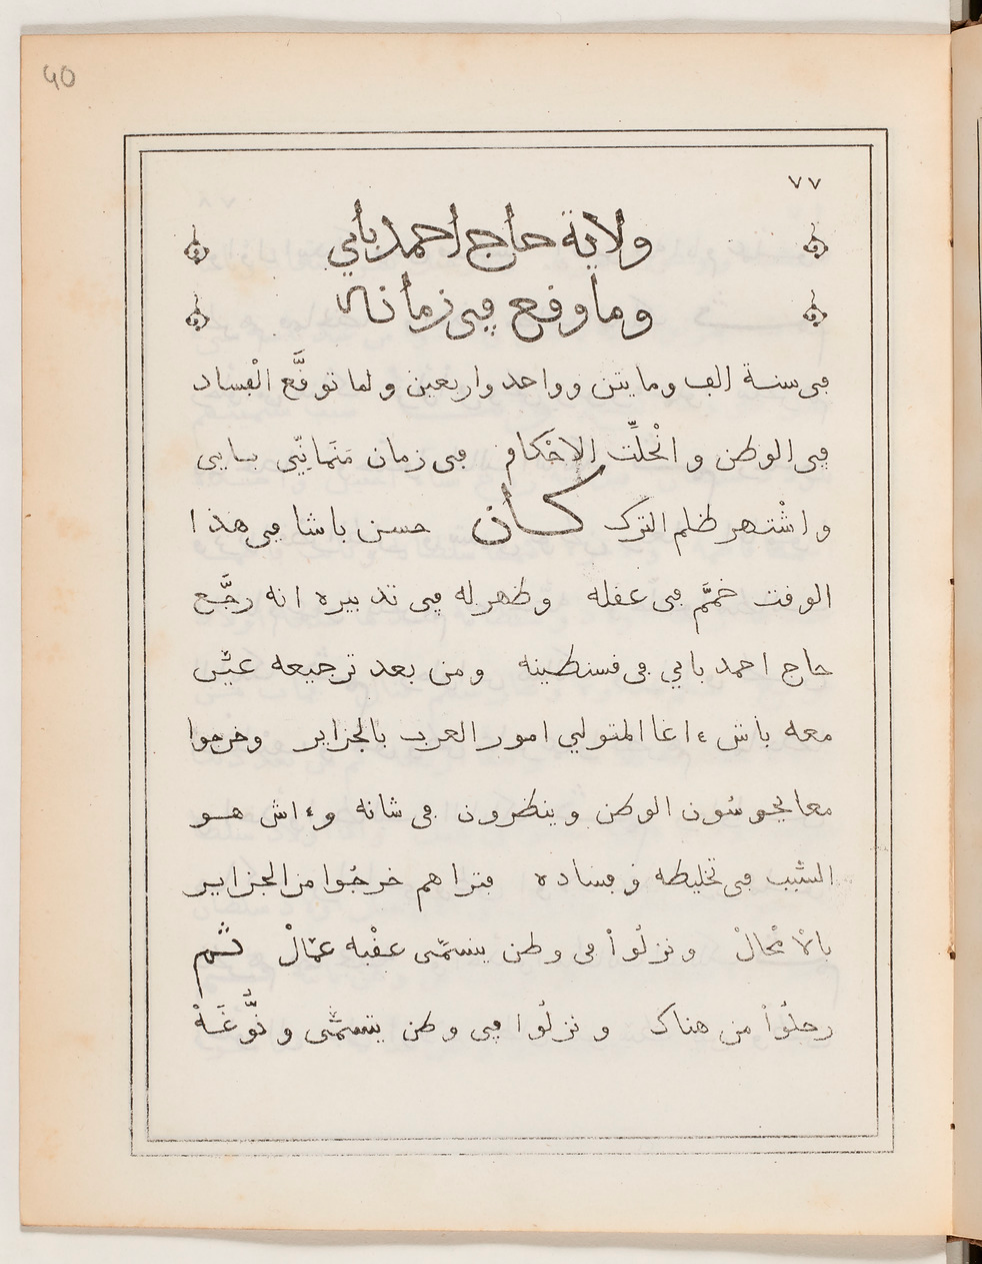 40
٧٧
ولاية حاج احمد بأيي
وما وقع في زمانه
في سنة الف ومايتن وواحد واربعين ولما توقَّع الْفساد
في الوطن و انْحلّت الاحْكام في زمان مَنَمانِّي بايي
و اشْتهر ظلم الترك كان حسن باشا في هذا
الوقت خمَّم في عقله وظهرله في تدبيره انه رجَّع
حاج احمد بايي في قسنطينه ومن بعد ترجيعه عيّن
معه باش ءاغا المتولي امور العرب بالجزاير وخرجوا
معا يحوسُون الوطن وينظرون في شانه وءاش هو
السّبب في تخليطه وفساده فتراهم خرجُوا من الجزاير
بالامْحالْ ونزلُواْ في وطن يتسمّى عقْبه عمّالْ ثم
رحلُواْ من هناك و نزلُوا في وطن يتسمّى ونُّوغَةْ